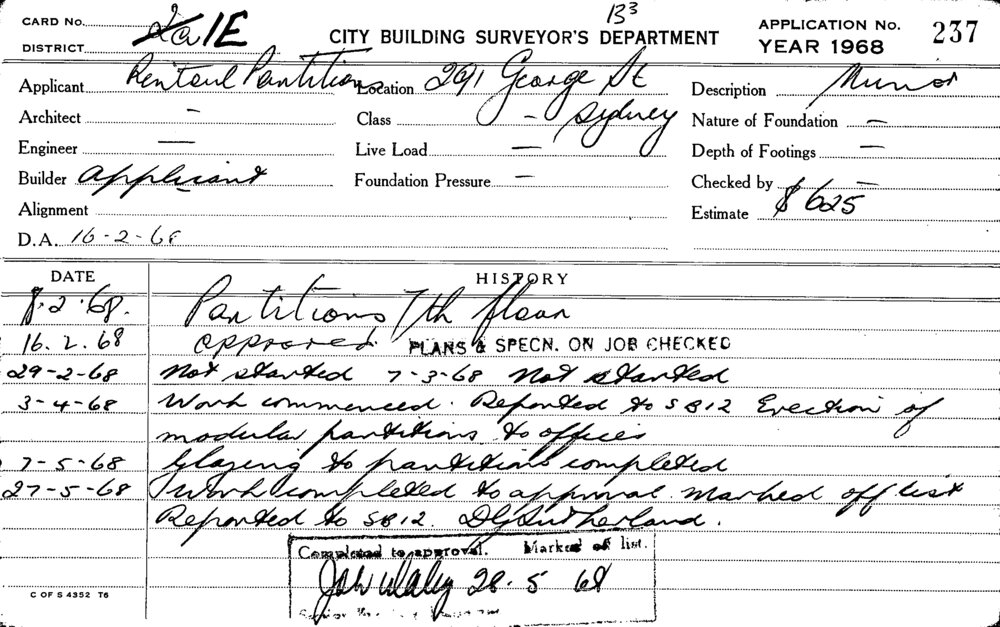 CARD No. 2a 1E
B3
DISTRICT
CITY BUILDING SURVEYOR'S DEPARTMENT
APPLICATION No. 237
YEAR 1968
Applicant Rentoul Partitions Location 291 George St Description Minor
Architect – Class – Sydney Nature of Foundation –
Engineer — Live Load — Depth of Footings —
Builder Applicant Foundation Pressure – Checked by –
Alignment Estimate $625
D.A. 16-2-68
DATE HISTORY
8.2.68. Partitions 7th floor
16.2.68 approved. PLANS & SPECN. ON JOB CHECKED
29-2-68 Not started 7-3-68 Not started
3-4-68 Work commenced. Reported to SB12 Erection of
modular partitions to offices
7-5-68 Glazing to partitions completed
27-5-68 Work completed to approval marked off list
Reported to SB12. DG Sutherland.
Completed to approval. Marked off list.
28.5 68
Senior
C OF S 4352 T6